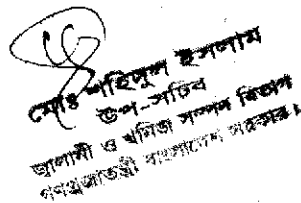 মোঃ শহিদুল ইসলাম
উপ-সচিব
জ্বালানী ও খনিজ সম্পদ বিভাগ
গণপ্রজাতন্ত্রী বাংলাদেশ সরকার।